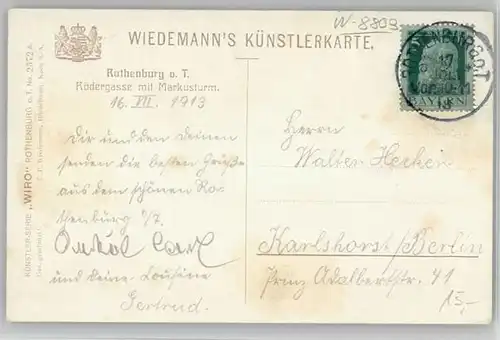 W-8809
WIEDEMANN'S KÜNSTLERKARTE.
Rothenburg o. T.
Rödergasse mit Markusturm.
16. VII. 1913
Dir und den Deinen
senden die besten Grüße
aus dem schönen Ro-
thenburg o/T.
Onkel Carl
und deine Cousine
Gertrud.
KÜNSTLER-SERIE „WIRO“ ROTHENBURG o. T. No. 2572 A
Ges. geschützt!
ROTHENBURG O.T
17 JUL
VORM
13
BAYERN
Herrn
Walter Hecker
Karlshorst/Berlin
Prinz Adalbertstr. 41
15,-